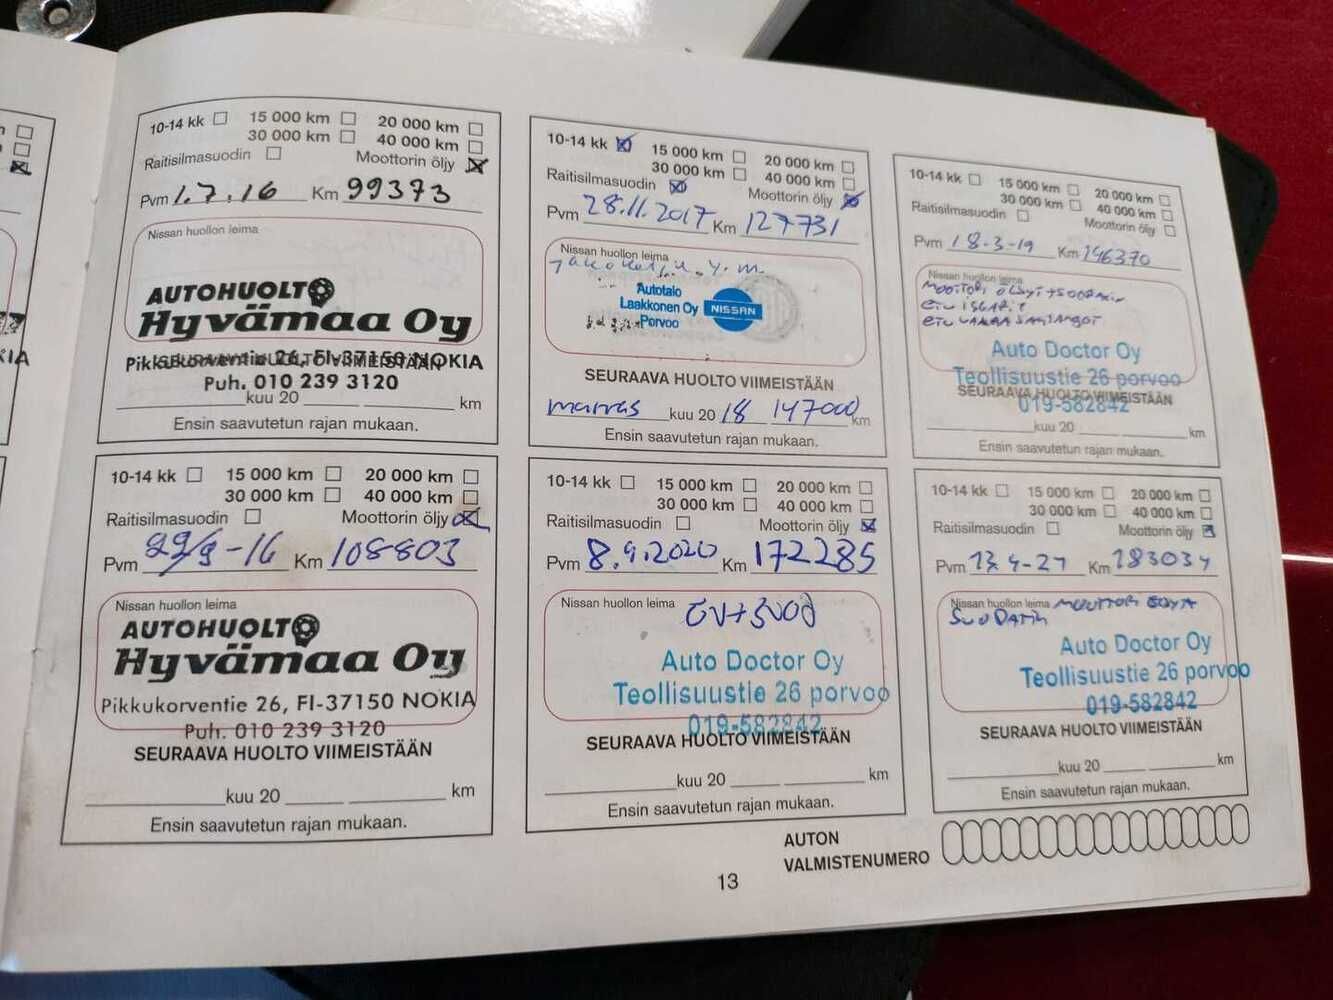 10-14 kk 15 000 km 20 000 km
30 000 km 40 000 km
Raitisilmasuodin Moottorin öljy
Pvm 1.7.16 Km 99373
Nissan huollon leima
AUTOHUOLTO
Hyvämaa Oy
Pikkukorventie 26, FI-37150 NOKIA
SEURAAVA HUOLTO VIIMEISTÄÄN
Puh. 010 239 3120
kuu 20 km
Ensin saavutetun rajan mukaan.
10-14 kk 15 000 km 20 000 km
30 000 km 40 000 km
Raitisilmasuodin Moottorin öljy
Pvm 29/9-16 Km 108803
Nissan huollon leima
AUTOHUOLTO
Hyvämaa Oy
Pikkukorventie 26, FI-37150 NOKIA
Puh. 010 239 3120
SEURAAVA HUOLTO VIIMEISTÄÄN
kuu 20 km
Ensin saavutetun rajan mukaan.
10-14 kk 15 000 km 20 000 km
30 000 km 40 000 km
Raitisilmasuodin Moottorin öljy
Pvm 28.11.2017 Km 127731
Nissan huollon leima
Autotalo
Laakkonen Oy NISSAN
Porvoo
SEURAAVA HUOLTO VIIMEISTÄÄN
marras kuu 20 18 147000 km
Ensin saavutetun rajan mukaan.
10-14 kk 15 000 km 20 000 km
30 000 km 40 000 km
Raitisilmasuodin Moottorin öljy
Pvm 8.9.2020 Km 172285
Nissan huollon leima
Auto Doctor Oy
Teollisuustie 26 porvoo
019-582842
SEURAAVA HUOLTO VIIMEISTÄÄN
kuu 20 km
Ensin saavutetun rajan mukaan.
10-14 kk 15 000 km 20 000 km
30 000 km 40 000 km
Raitisilmasuodin Moottorin öljy
Pvm 18-3-19 Km 146370
Nissan huollon leima
Auto Doctor Oy
Teollisuustie 26 porvoo
SEURAAVA HUOLTO VIIMEISTÄÄN
019-582842
kuu 20 km
Ensin saavutetun rajan mukaan.
10-14 kk 15 000 km 20 000 km
30 000 km 40 000 km
Raitisilmasuodin Moottorin öljy
Pvm Km 183034
Nissan huollon leima
Auto Doctor Oy
Teollisuustie 26 porvoo
019-582842
SEURAAVA HUOLTO VIIMEISTÄÄN
kuu 20 km
Ensin saavutetun rajan mukaan.
AUTON
VALMISTENUMERO
13